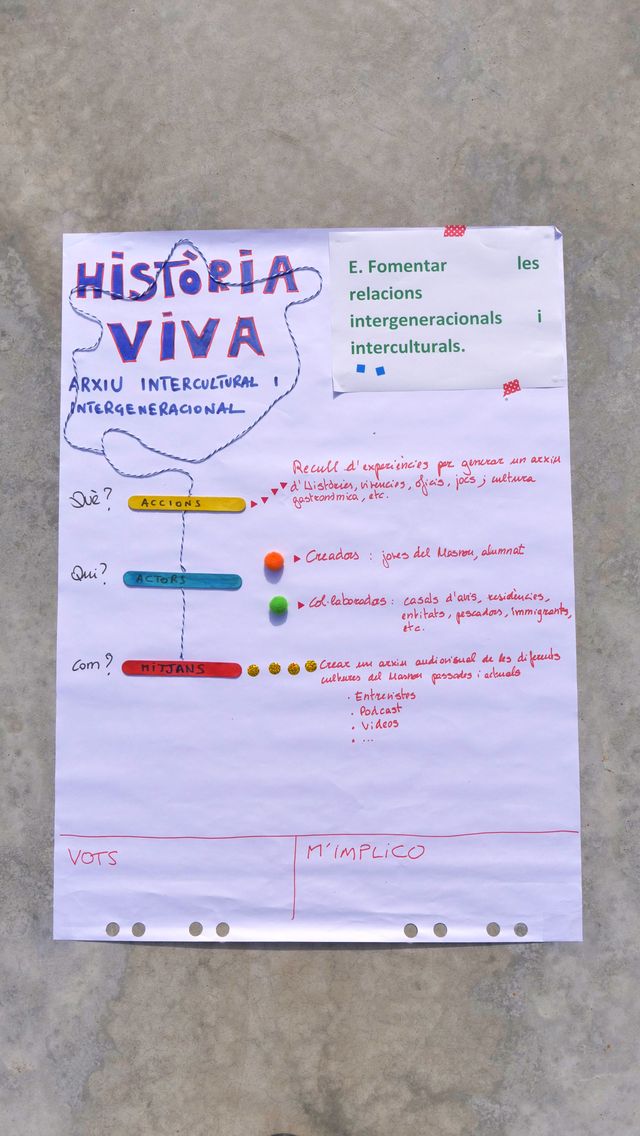 HISTÒRIA
VIVA
ARXIU INTERCULTURAL I
INTERGENERACIONAL
E. Fomentar les
relacions
intergeneracionals i
interculturals.
Què?
ACCIONS
Recull d'experiències per generar un arxiu
d'Històries, vivències, oficis, jocs i cultura
gastronòmica, etc.
Qui?
ACTORS
Creadors : joves del Masnou, alumnat
Col·laboradors : casals d'avis, residències,
entitats, pescadors, immigrants,
etc.
Com?
MITJANS
Crear un arxiu audiovisual de les diferents
cultures del Masnou passades i actuals
· Entrevistes
· Podcast
· Videos
· ...
VOTS
M'IMPLICO